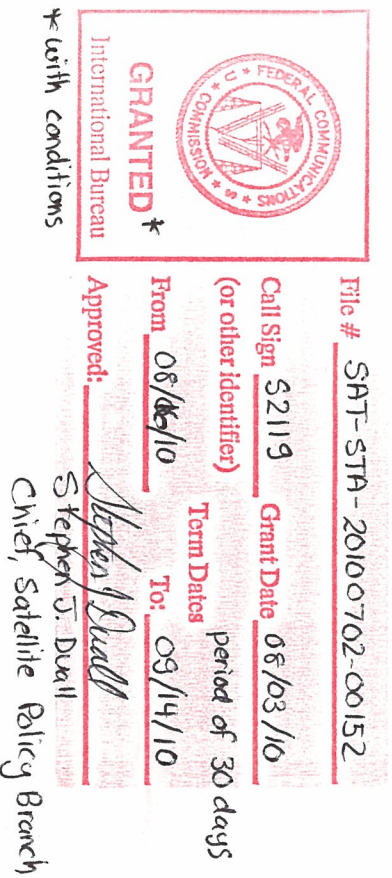 FEDERAL COMMUNICATIONS COMMISSION * U * S *
GRANTED*
International Bureau
* with conditions
File # SAT-STA-20100702-00152
Call Sign S2119 Grant Date 08/03/10
(or other identifier)
Term Dates period of 30 days
From To: 09/14/10
Approved: Stephen J Duall
Stephen J. Duall
Chief, Satellite Policy Branch